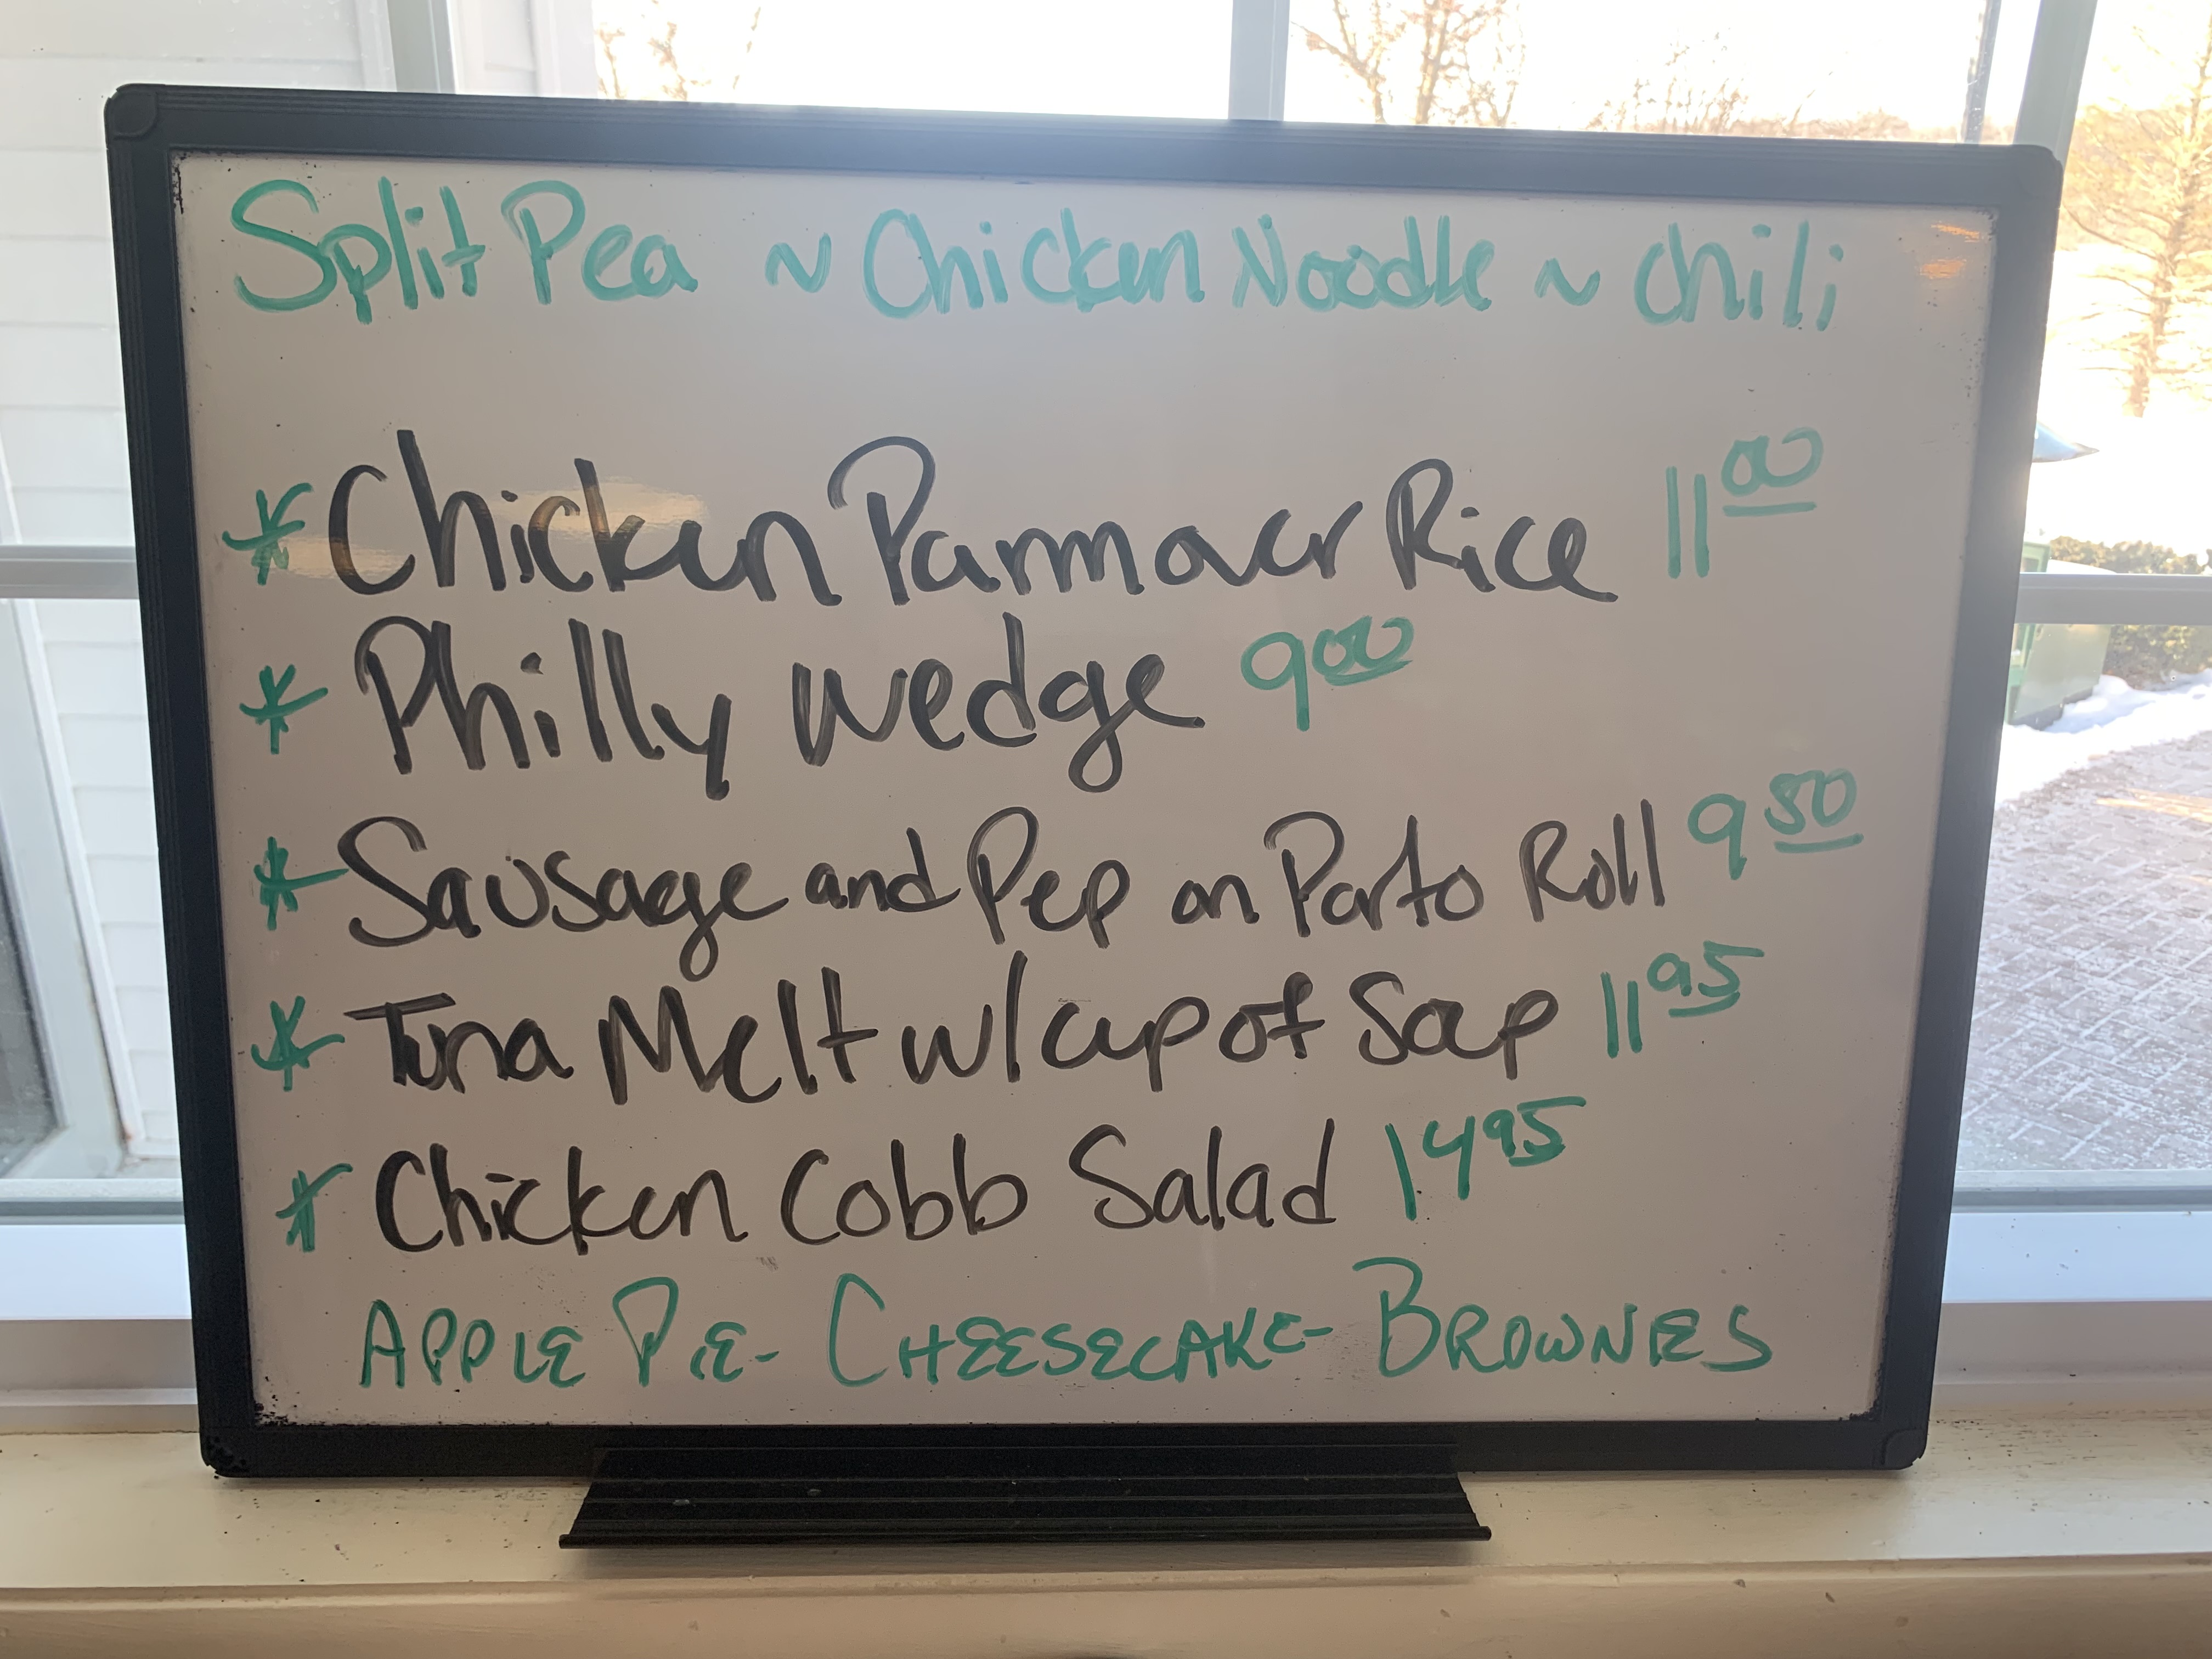 Split Pea ~ Chicken Noodle ~ Chili
* Chicken Parm over Rice 11 00
* Philly Wedge 9 00
* Sausage and Pep on Porto Roll 9 50
* Tuna Melt w/ cup of Soup 11 95
* Chicken Cobb Salad 14 95
APPLE PIE - CHEESECAKE - BROWNIES